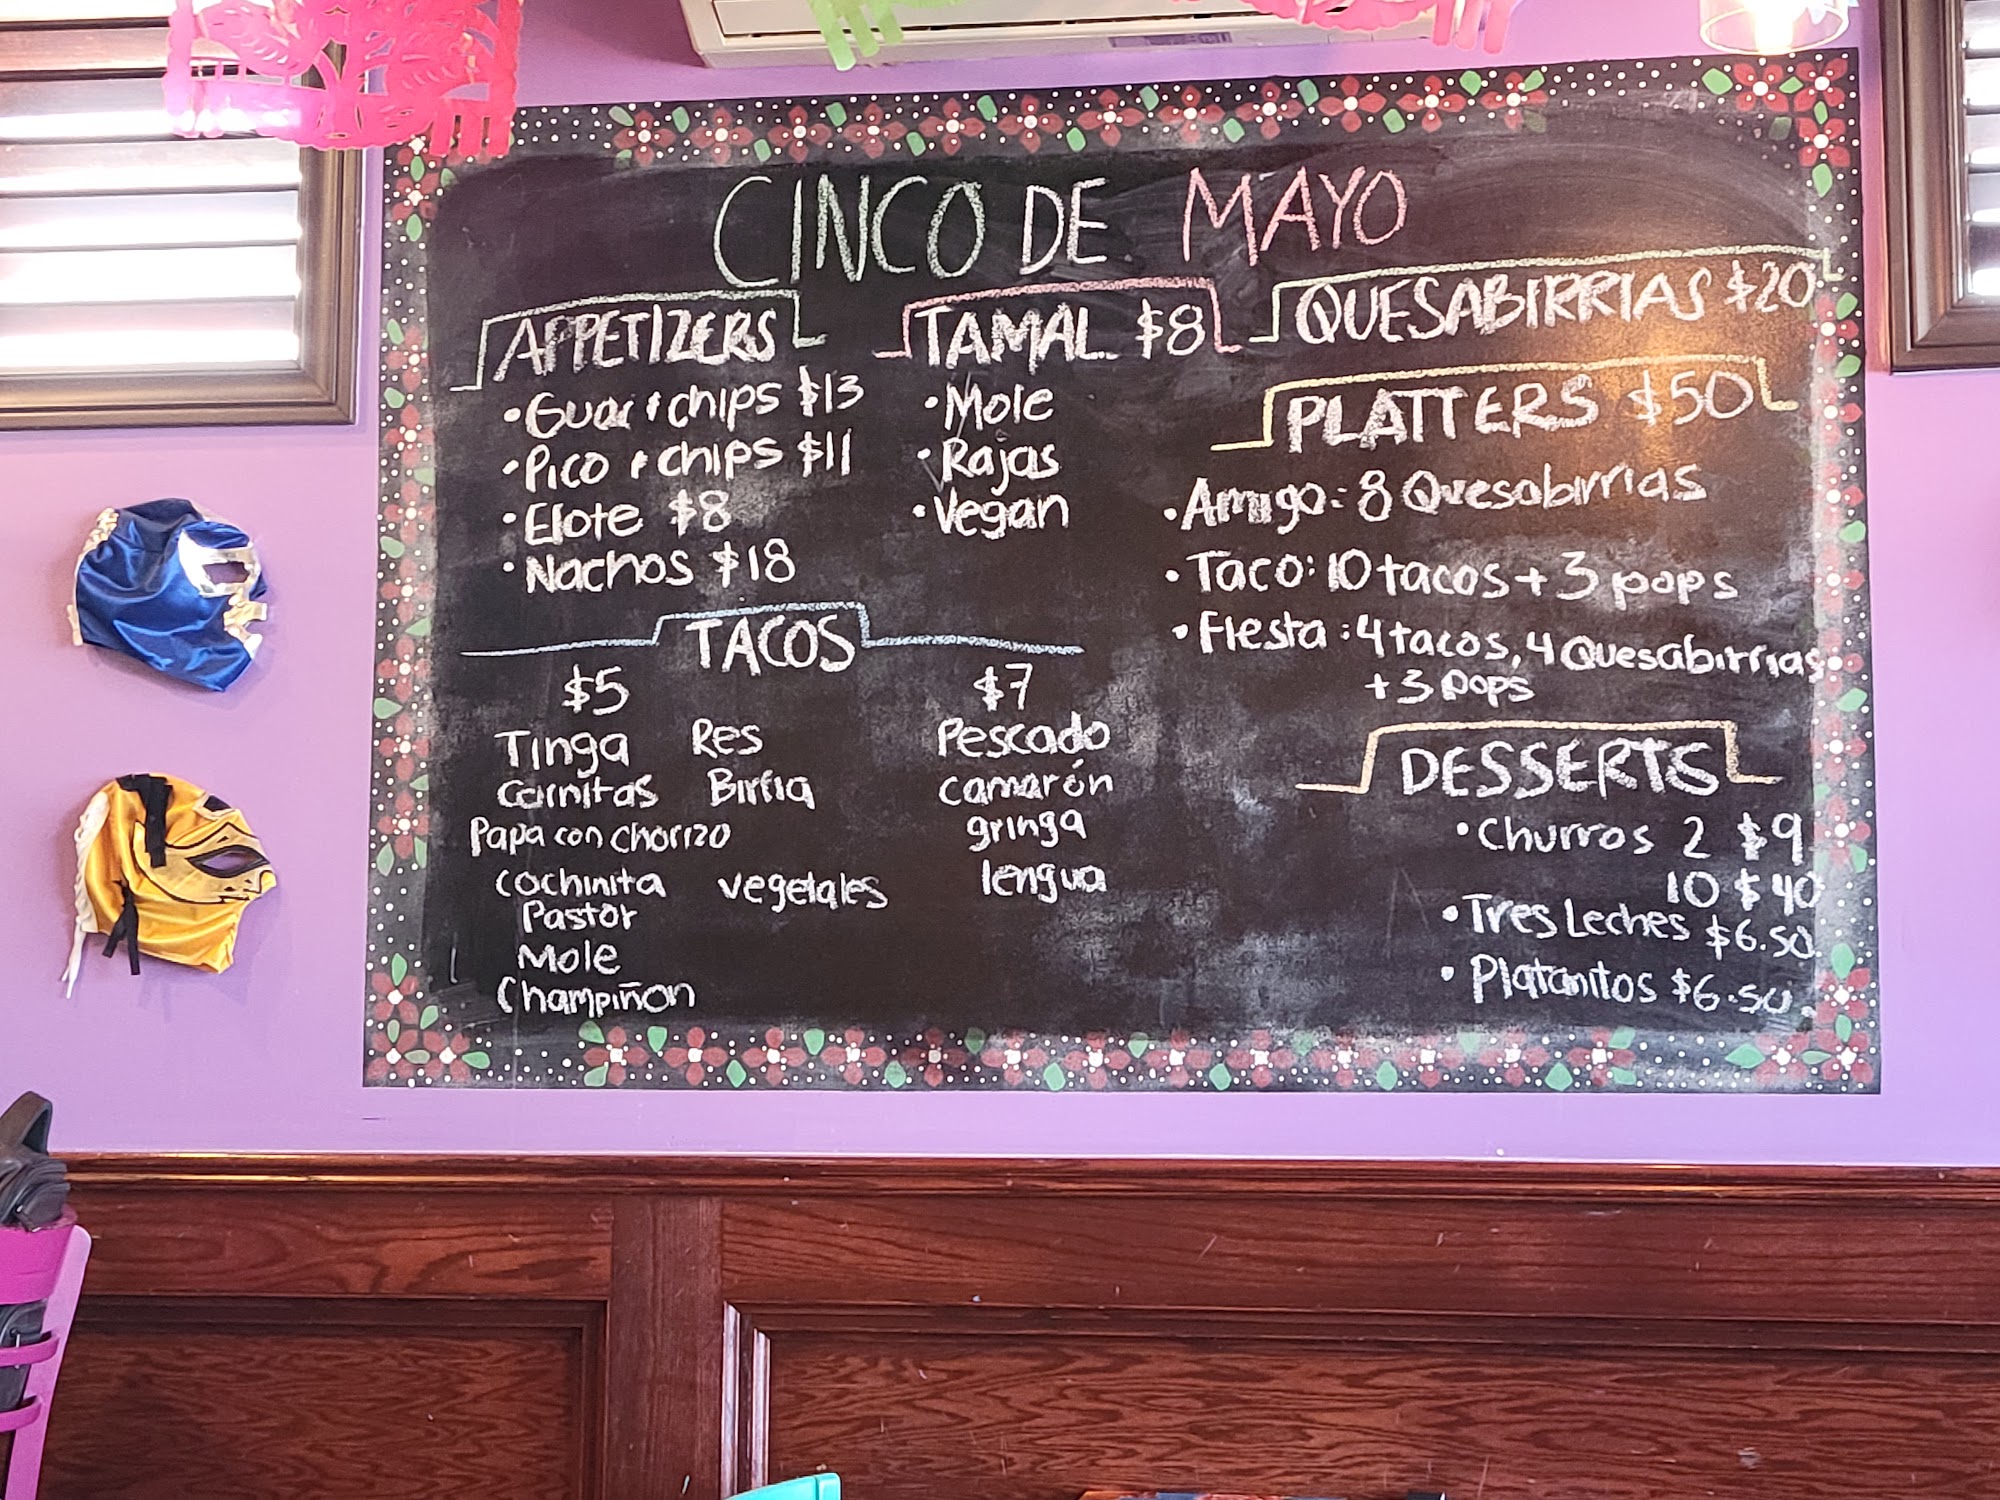 CINCO DE MAYO
APPETIZERS
• Guac + chips $13
• Pico + chips $11
• Elote $8
• Nachos $18
TAMAL $8
• Mole
• Rajas
• Vegan
QUESABIRRIAS $20
PLATTERS $50
• Amigo: 8 Quesabirrias
• Taco: 10 tacos + 3 pops
• Fiesta: 4 tacos, 4 Quesabirrias
+ 3 pops
TACOS
$5
Tinga Res
Carnitas Birria
Papa con Chorizo
Cochinita Vegetales
Pastor
Mole
Champiñon
$7
Pescado
camarón
gringa
lengua
DESSERTS
• Churros 2 $9
10 $40
• Tres Leches $6.50
• Platanitos $6.50